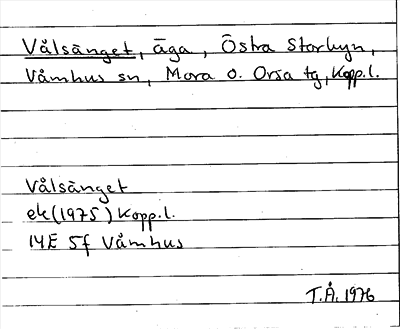 Vålsänget, äga, Östra Storbyn,
Våmhus sn, Mora o. Orsa tg, Kopp.l.
Vålsänget
ek (1975) Kopp.l.
14E 5f Våmhus
T.Å. 1976